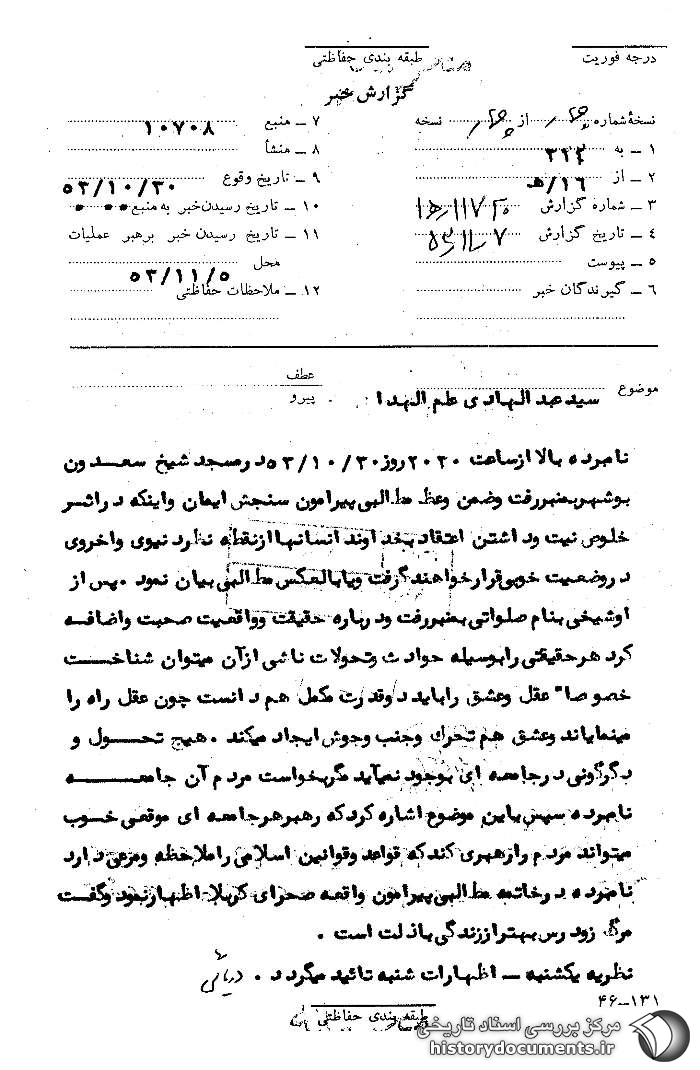 درجه فوریت
طبقه بندی حفاظتی
گزارش خبر
نسخهٔ شماره از نسخه
۱ ــ به ۳۲۲
۲ ــ از ۱۶/ﻫ
۳ ــ شماره گزارش
۴ ــ تاریخ گزارش ۵۳/۱۱/۷
۵ ــ پیوست
۶ ــ گیرندگان خبر
۷ ــ منبع ۱۰۷۰۸
۸ ــ منشأ
۹ ــ تاریخ وقوع ۵۳/۱۰/۳۰
۱۰ ــ تاریخ رسیدن خبر به منبع
۱۱ ــ تاریخ رسیدن خبر برهبر عملیات
محل ۵۳/۱۱/۵
۱۲ ــ ملاحظات حفاظتی
عطف
پیرو
موضوع سید عبدالهادی علم الهدا
نامبرده بالا از ساعت ۲۰۳۰ روز ۵۳/۱۰/۳۰ در مسجد شیخ سعدون
بوشهر بمنبر رفت و ضمن وعظ مطالبی پیرامون سنجش ایمان و اینکه در اثر
خلوص نیت و داشتن اعتقاد بخداوند انسانها از نقطه نظر دنیوی و اخروی
در وضعیت خوبی قرار خواهند گرفت و یا بالعکس مطالبی بیان نمود . پس از
او شیخی بنام صلواتی بمنبر رفت و درباره حقیقت و واقعیت صحبت و اضافه
کرد هر حقیقتی را بوسیله حوادث و تحولات ناشی از آن میتوان شناخت
خصوصا" عقل و عشق را باید دو قدرت مکمل هم دانست چون عقل راه را
مینمایاند و عشق هم تحرک و جنب و جوش ایجاد میکند . هیچ تحول و
دگرگونی در جامعه ای بوجود نمیآید مگر بخواست مردم آن جامعه
نامبرده سپس باین موضوع اشاره کرد که رهبر هر جامعه ای موقعی خوب
میتواند مردم را رهبری کند که قواعد و قوانین اسلامی را ملاحظه و مرعی دارد
نامبرده در خاتمه مطالبی پیرامون واقعه صحرای کربلا اظهار نمود و گفت
مرگ زود رس بهتر از زندگی با ذلت است .
نظریه یکشنبه ــ اظهارات شنبه تائید میگردد . دریائی
۴۶-۱۳۱
طبقه بندی حفاظتی
مرکز بررسی اسناد تاریخی
historydocuments.ir